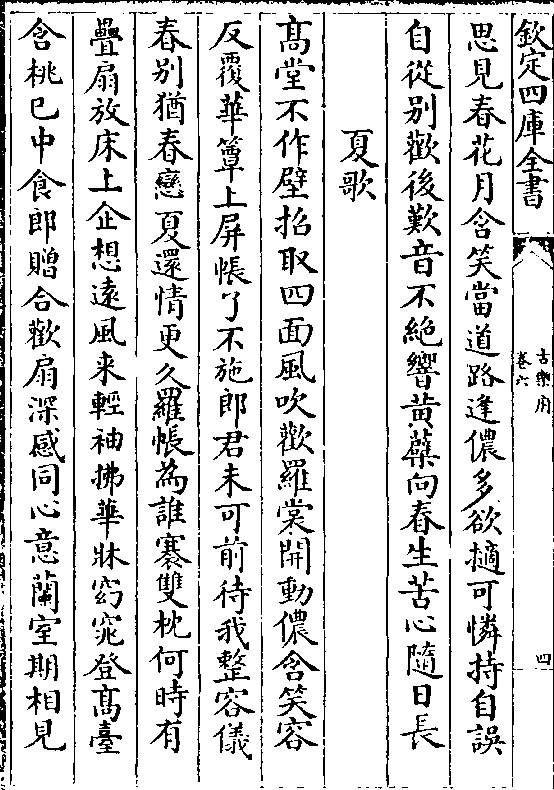 欽定四庫全書
古樂府
卷六
四
思見春花月含笑當道路逢儂多欲擿可憐持自誤
自從別歡後歎音不絕響黃蘗向春生苦心隨日長
夏歌
髙堂不作壁招取四面風吹歡羅裳開動儂含笑容
反覆華簟上屏帳了不施郎君未可前待我整容儀
春別猶春戀夏還情更久羅帳為誰褰雙枕何時有
疊扇放床上企想遠風来輕袖拂華牀窈窕登髙臺
含桃已中食郎贈合歡扇深感同心意蘭室期相見